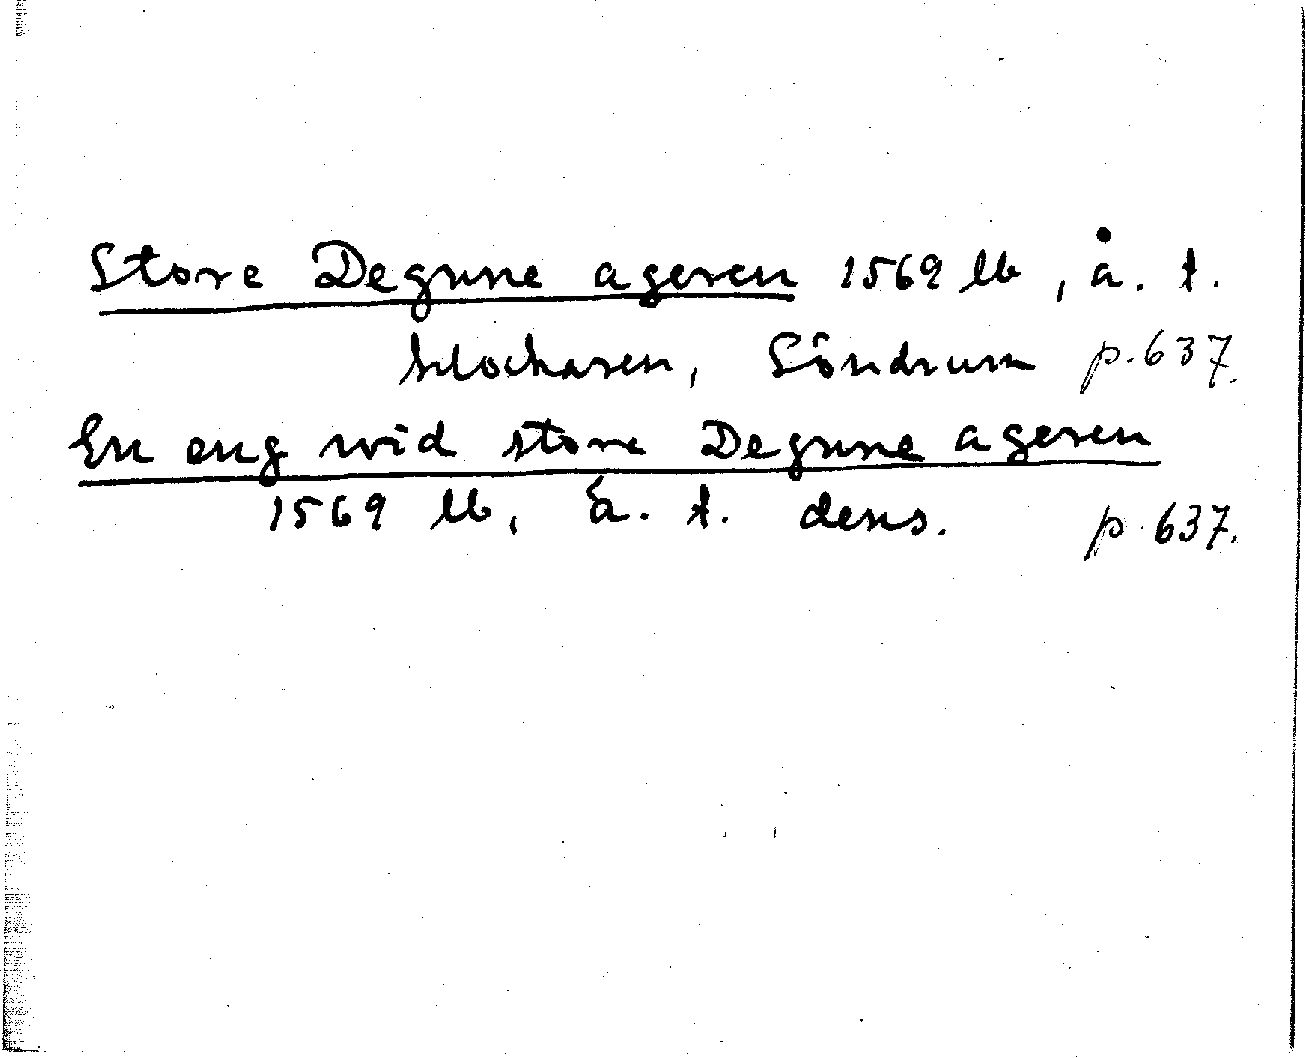 Store Degnne ageren 1569 lb, å. t.
klockaren, Söndrum p. 637.
En eng wid store Degnne ageren
1569 lb, å. t. dens. p. 637.